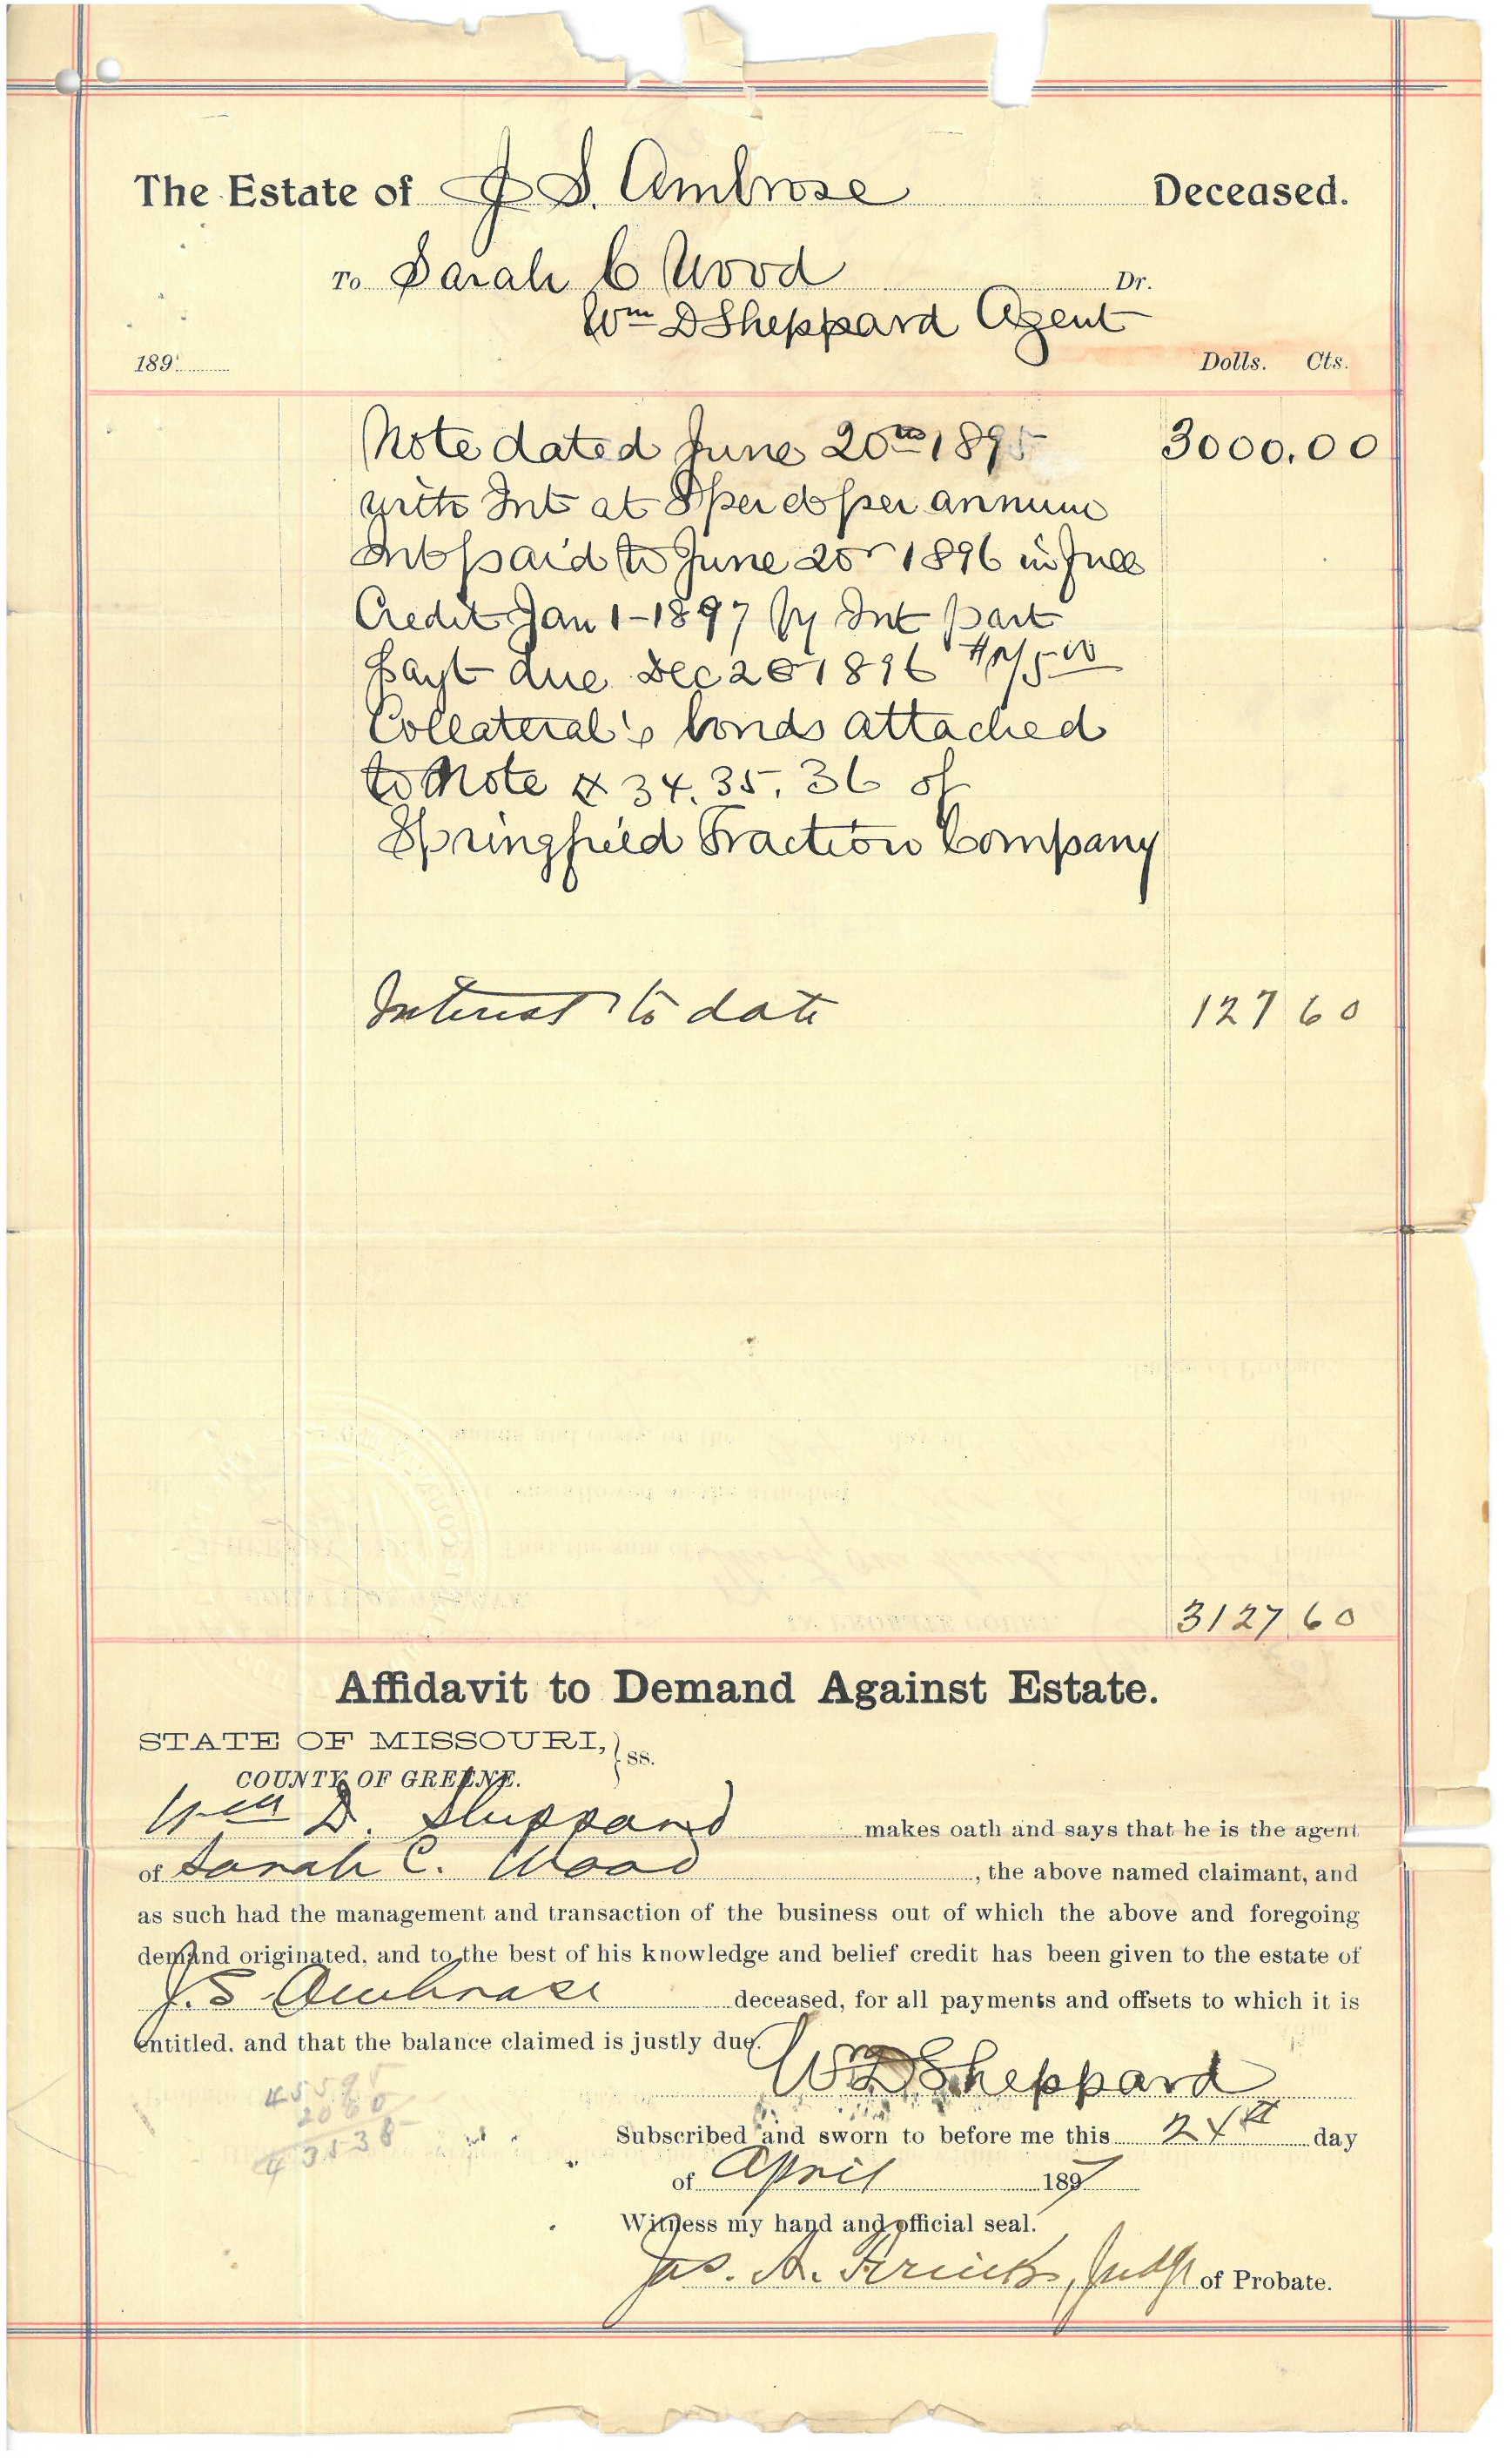 The Estate of J S. Ambrose Deceased.
To Sarah C Wood Dr.
Wm D Sheppard Agent
189 Dolls. Cts.
Note dated June 20th 1895 3000.00
with Int at 8 per ct per annum
Int paid to June 20 1896 in full
Credit Jan 1-1897 By Int part
payt due Dec 20 1896
Collateral's bonds attached
to Note # 34. 35. 36 of
Springfield Traction Company
Interest to date 127 60
3127 60
Affidavit to Demand Against Estate.
STATE OF MISSOURI, } ss.
COUNTY OF GREENE.
Wm D. Sheppard makes oath and says that he is the agent
of Sarah C. Wood, the above named claimant, and
as such had the management and transaction of the business out of which the above and foregoing
demand originated, and to the best of his knowledge and belief credit has been given to the estate of
J. S Ambrose deceased, for all payments and offsets to which it is
entitled, and that the balance claimed is justly due.
Wm D Sheppard
45595
2060
43538
Subscribed and sworn to before me this 24th day
of April 1897
Witness my hand and official seal.
Jas. A. Judge of Probate.